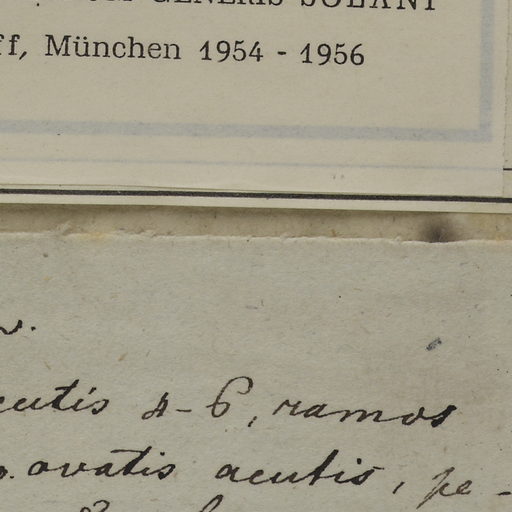 GENERIS SOLANI
ff, München 1954 - 1956
cutis 4-6, ramos
ovatis acutis, pe-